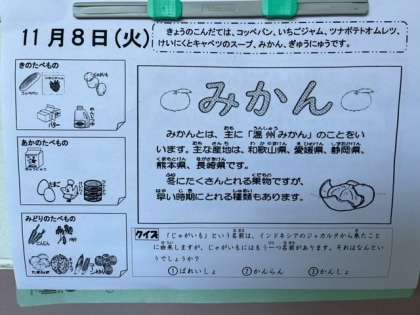 11月8日(火)
きょうのこんだては、コッペパン、いちごジャム、ツナポテトオムレツ、
けいにくとキャベツのスープ、みかん、ぎゅうにゅうです。
きのたべもの
あかのたべもの
みどりのたべもの
みかん
みかんとは、主に「温州みかん」のことをい
います。主な産地は、和歌山県、愛媛県、静岡県、
熊本県、長崎県です。
冬にたくさんとれる果物ですが、
早い時期にとれる種類もあります。
クイズ 「じゃがいも」という名前は、インドネシアのジャカルタから来たこと
に由来しますが、じゃがいもにはもう一つ名前があります。それはなんとい
うでしょうか?
①ばれいしょ ②かんらん ③かんしょ